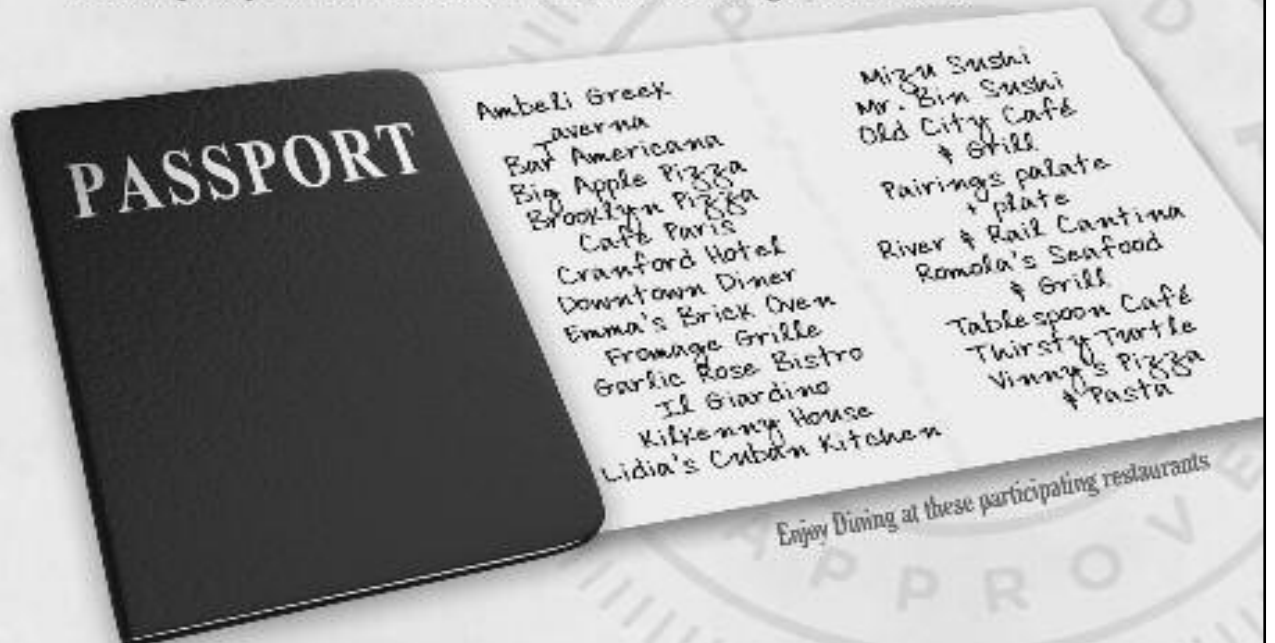 PASSPORT
Ambeli Greek
Taverna
Bar Americana
Big Apple Pizza
Brooklyn Pizza
Café Paris
Cranford Hotel
Downtown Diner
Emma's Brick Oven
Fromage Grille
Garlic Rose Bistro
Il Giardino
Kilkenny House
Lidia's Cuban Kitchen
Mizu Sushi
Mr. Bin Sushi
Old City Café
& Grill
Pairings palate
+ plate
River & Rail Cantina
Romola's Seafood
& Grill
Tablespoon Café
Thirsty Turtle
Vinny's Pizza
& Pasta
Enjoy Dining at these participating restaurants